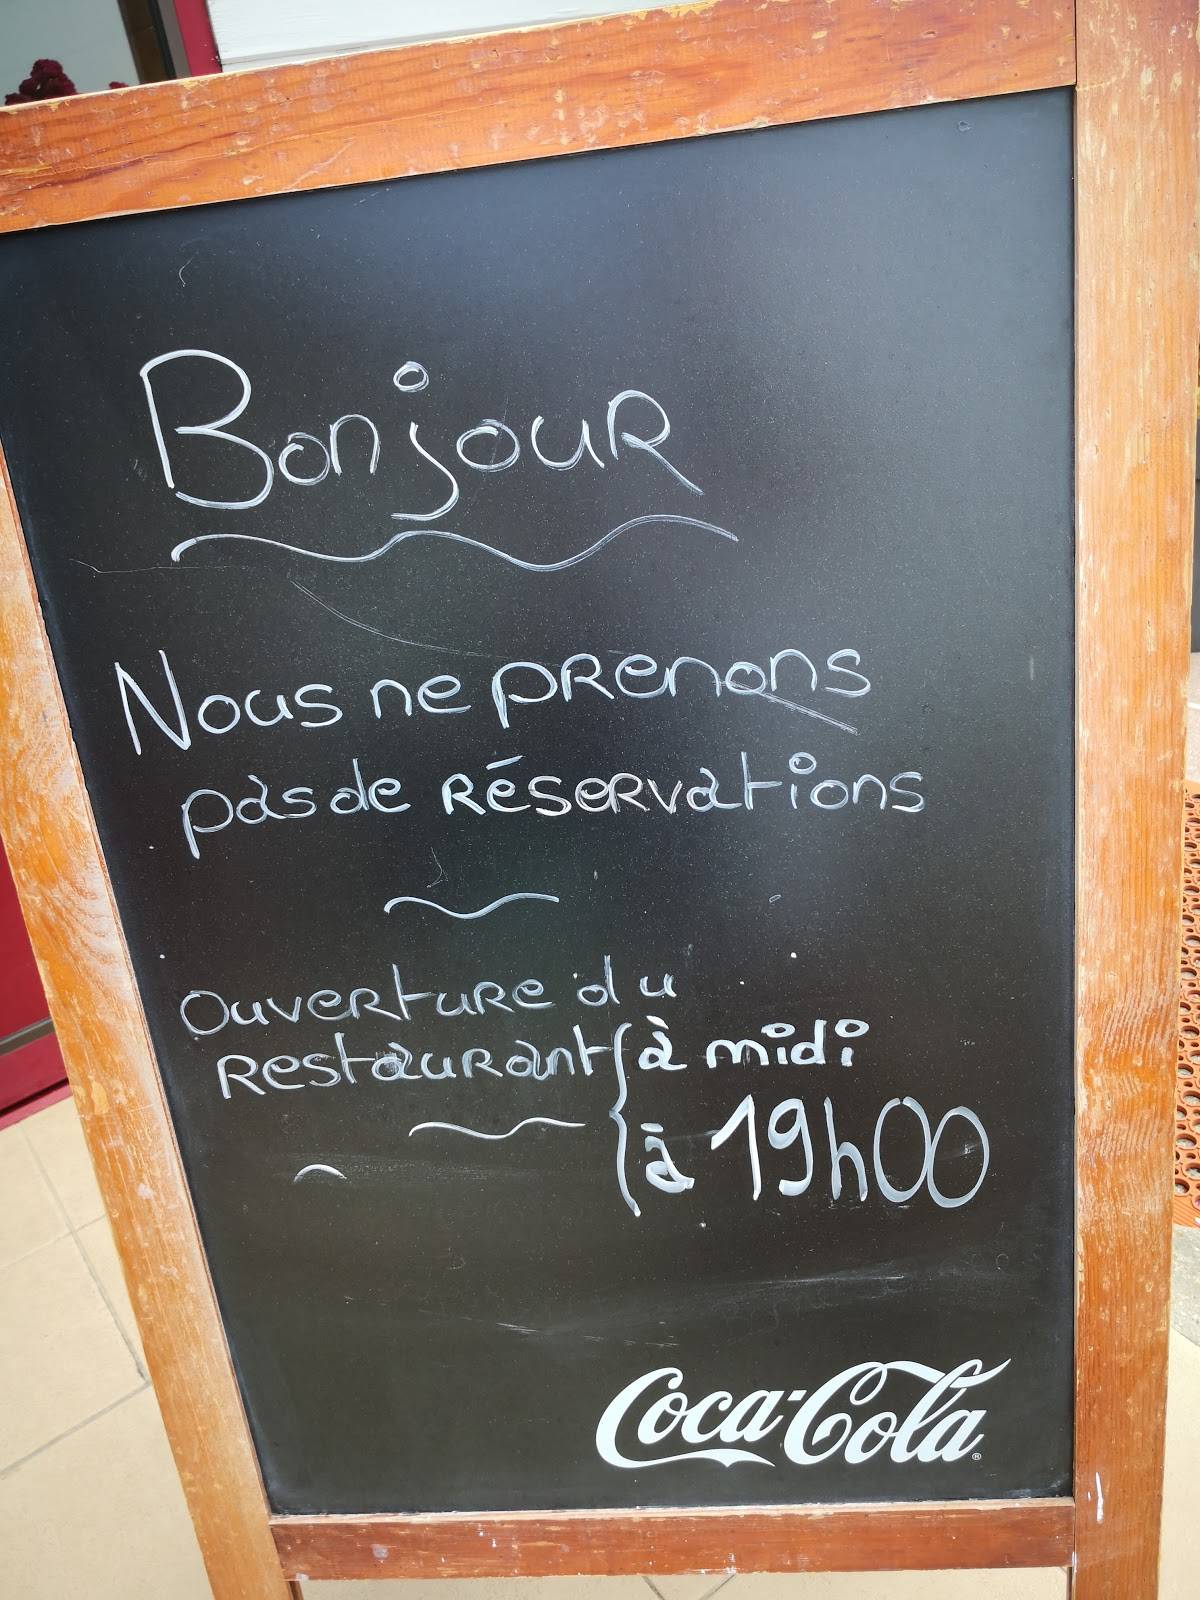 Bonjour
Nous ne prenons
pas de réservations
Ouverture du
restaurant { à midi
à 19h00
Coca-Cola®